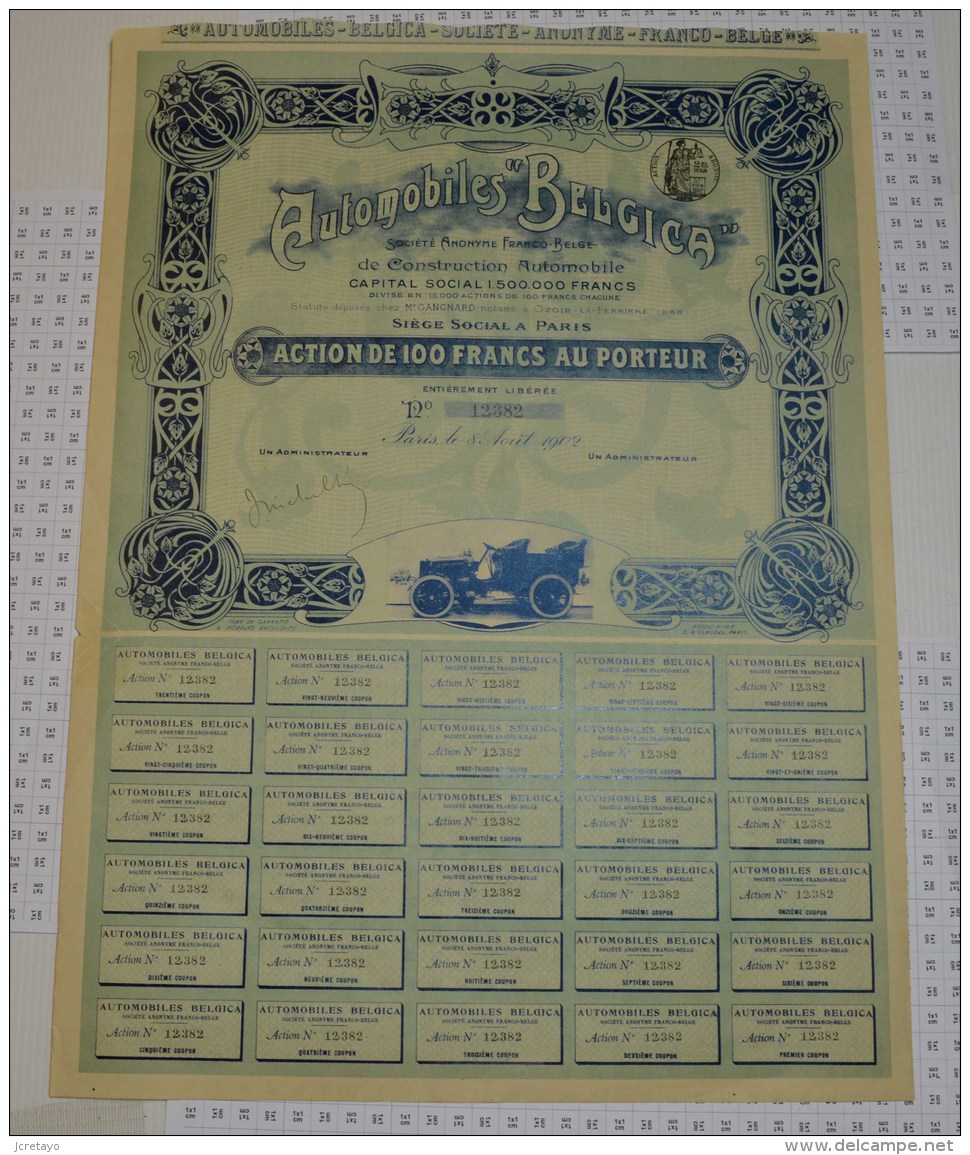 "AUTOMOBILES-BELGICA-SOCIÉTÉ-ANONYME-FRANCO-BELGE"
Automobiles "BELGICA"
SOCIÉTÉ ANONYME FRANCO-BELGE
de Construction Automobile
CAPITAL SOCIAL 1.500.000 FRANCS
DIVISÉ EN 15.000 ACTIONS DE 100 FRANCS CHACUNE
Statuts déposés chez Me GANGNARD notaire à OZOIR-LA-FERRIÈRE
SIÈGE SOCIAL A PARIS
ACTION DE 100 FRANCS AU PORTEUR
ENTIÈREMENT LIBÉRÉE
No 12382
Paris, le 8 Août 1902
UN ADMINISTRATEUR
UN ADMINISTRATEUR
AUTOMOBILES BELGICA
SOCIÉTÉ ANONYME FRANCO-BELGE
Action No 12382
TRENTIÈME COUPON
AUTOMOBILES BELGICA
SOCIÉTÉ ANONYME FRANCO-BELGE
Action No 12382
VINGT-NEUVIÈME COUPON
AUTOMOBILES BELGICA
SOCIÉTÉ ANONYME FRANCO-BELGE
Action No 12382
VINGT-HUITIÈME COUPON
AUTOMOBILES BELGICA
SOCIÉTÉ ANONYME FRANCO-BELGE
Action No 12382
VINGT-SEPTIÈME COUPON
AUTOMOBILES BELGICA
SOCIÉTÉ ANONYME FRANCO-BELGE
Action No 12382
VINGT-SIXIÈME COUPON
AUTOMOBILES BELGICA
SOCIÉTÉ ANONYME FRANCO-BELGE
Action No 12382
VINGT-CINQUIÈME COUPON
AUTOMOBILES BELGICA
SOCIÉTÉ ANONYME FRANCO-BELGE
Action No 12382
VINGT-QUATRIÈME COUPON
AUTOMOBILES BELGICA
SOCIÉTÉ ANONYME FRANCO-BELGE
Action No 12382
VINGT-TROISIÈME COUPON
AUTOMOBILES BELGICA
SOCIÉTÉ ANONYME FRANCO-BELGE
Action No 12382
VINGT-DEUXIÈME COUPON
AUTOMOBILES BELGICA
SOCIÉTÉ ANONYME FRANCO-BELGE
Action No 12382
VINGT-ET-UNIÈME COUPON
AUTOMOBILES BELGICA
SOCIÉTÉ ANONYME FRANCO-BELGE
Action No 12382
VINGTIÈME COUPON
AUTOMOBILES BELGICA
SOCIÉTÉ ANONYME FRANCO-BELGE
Action No 12382
DIX-NEUVIÈME COUPON
AUTOMOBILES BELGICA
SOCIÉTÉ ANONYME FRANCO-BELGE
Action No 12382
DIX-HUITIÈME COUPON
AUTOMOBILES BELGICA
SOCIÉTÉ ANONYME FRANCO-BELGE
Action No 12382
DIX-SEPTIÈME COUPON
AUTOMOBILES BELGICA
SOCIÉTÉ ANONYME FRANCO-BELGE
Action No 12382
SEIZIÈME COUPON
AUTOMOBILES BELGICA
SOCIÉTÉ ANONYME FRANCO-BELGE
Action No 12382
QUINZIÈME COUPON
AUTOMOBILES BELGICA
SOCIÉTÉ ANONYME FRANCO-BELGE
Action No 12382
QUATORZIÈME COUPON
AUTOMOBILES BELGICA
SOCIÉTÉ ANONYME FRANCO-BELGE
Action No 12382
TREIZIÈME COUPON
AUTOMOBILES BELGICA
SOCIÉTÉ ANONYME FRANCO-BELGE
Action No 12382
DOUZIÈME COUPON
AUTOMOBILES BELGICA
SOCIÉTÉ ANONYME FRANCO-BELGE
Action No 12382
ONZIÈME COUPON
AUTOMOBILES BELGICA
SOCIÉTÉ ANONYME FRANCO-BELGE
Action No 12382
DIXIÈME COUPON
AUTOMOBILES BELGICA
SOCIÉTÉ ANONYME FRANCO-BELGE
Action No 12382
NEUVIÈME COUPON
AUTOMOBILES BELGICA
SOCIÉTÉ ANONYME FRANCO-BELGE
Action No 12382
HUITIÈME COUPON
AUTOMOBILES BELGICA
SOCIÉTÉ ANONYME FRANCO-BELGE
Action No 12382
SEPTIÈME COUPON
AUTOMOBILES BELGICA
SOCIÉTÉ ANONYME FRANCO-BELGE
Action No 12382
SIXIÈME COUPON
AUTOMOBILES BELGICA
SOCIÉTÉ ANONYME FRANCO-BELGE
Action No 12382
CINQUIÈME COUPON
AUTOMOBILES BELGICA
SOCIÉTÉ ANONYME FRANCO-BELGE
Action No 12382
QUATRIÈME COUPON
AUTOMOBILES BELGICA
SOCIÉTÉ ANONYME FRANCO-BELGE
Action No 12382
TROISIÈME COUPON
AUTOMOBILES BELGICA
SOCIÉTÉ ANONYME FRANCO-BELGE
Action No 12382
DEUXIÈME COUPON
AUTOMOBILES BELGICA
SOCIÉTÉ ANONYME FRANCO-BELGE
Action No 12382
PREMIER COUPON
jcretayo
www.delcampe.net